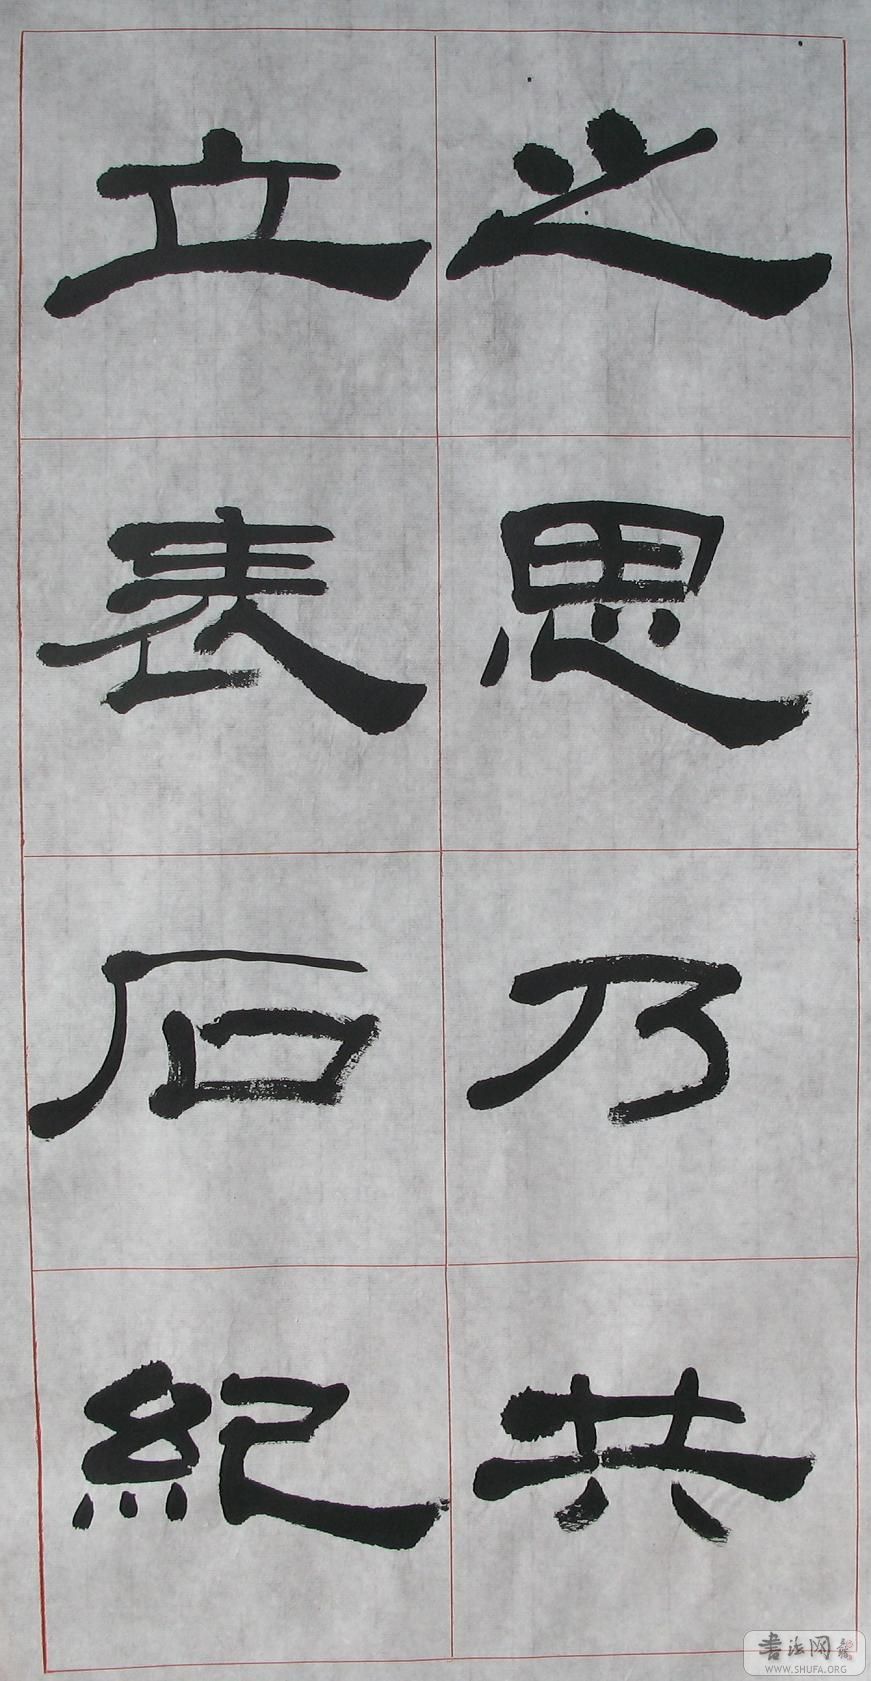 之思乃共
立表石紀
書法网
WWW.SHUFA.ORG